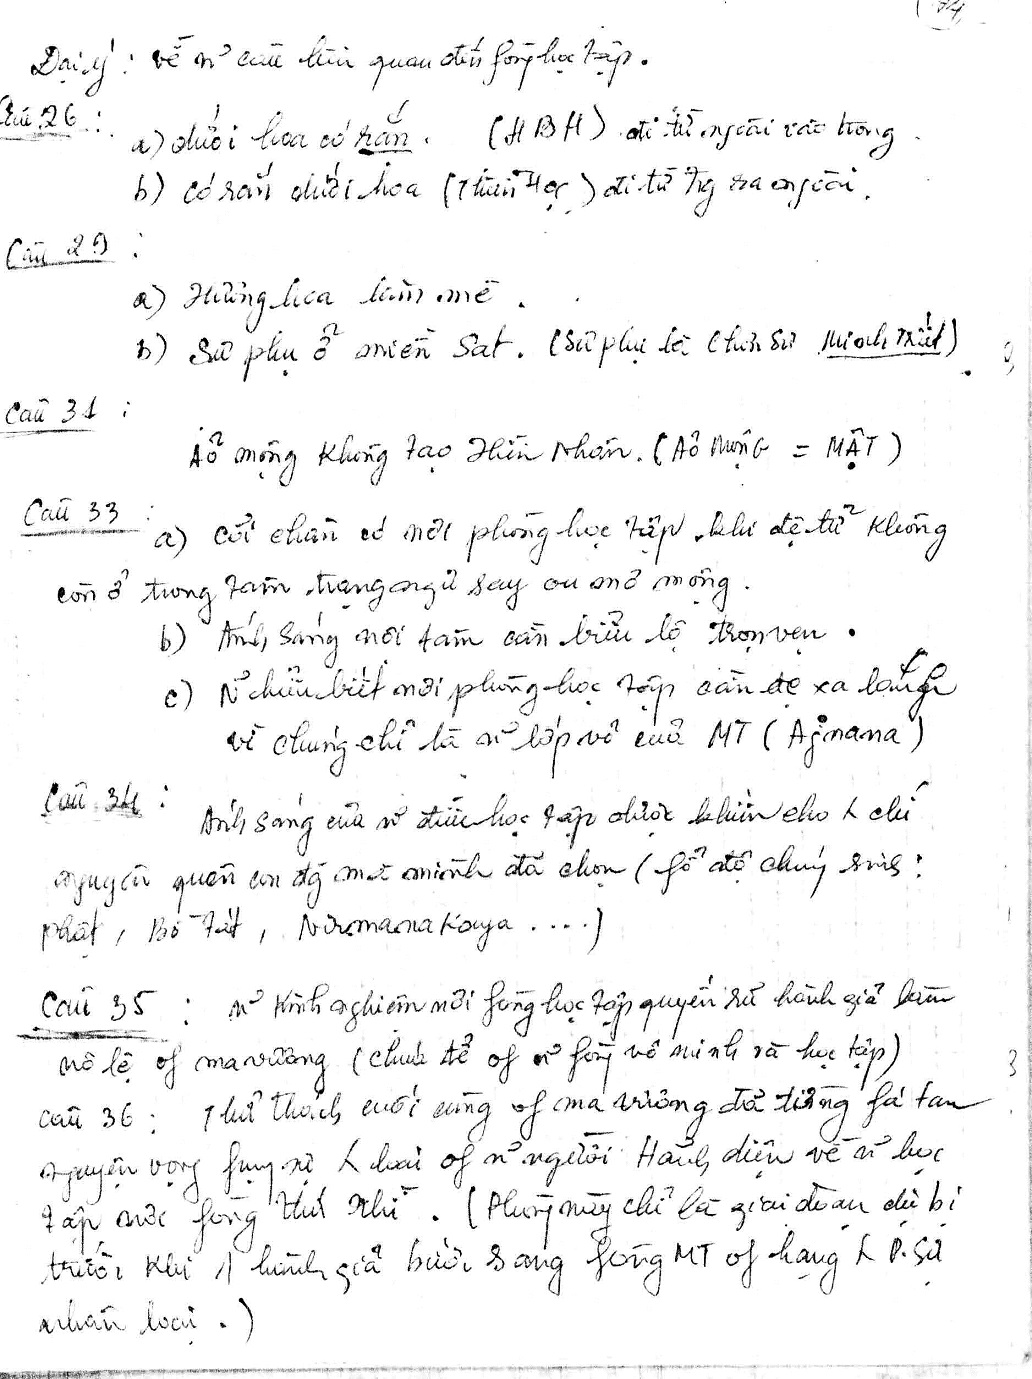 74
Đại ý : về n~ câu liên quan đến fòng học tập.
Câu 26 :
a) dưới hoa có rắn. (HBH) đi từ ngoài vào trong.
b) có rắn dưới hoa (Thiền Học) đi từ tg ra ngoài.
Câu 29 :
a) Hương hoa làm mê.
b) Sư phụ ở miền Sat. (Sư phụ là Chơn Sư Minh Triết)
Câu 31 :
Ảo mộng không tạo Hiền Nhân. (Ảo mộng = MẬT)
Câu 33 :
a) cởi chân có nơi phòng học tập khi đệ tử không
còn ở trong tâm trạng ngủ say or mơ mộng.
b) Ánh sáng nơi tâm cần biểu lộ trọn vẹn.
c) N~ hiểu biết nơi phòng học tập cần để xa lánh
vì chúng chỉ là n~ lớp vỏ của MT (Ajnana)
Câu 34 :
Ánh sáng của n~ điều học tập được khiến cho L chí
nguyện quên con đg mà mình đã chọn (fổ độ chúng sinh :
phật, Bồ Tát, Nirmanakaya ....)
Câu 35 : n~ kinh nghiệm nơi fòng học tập quyến rũ hành giả làm
nô lệ of ma vương (chúa tể of n~ fòng vô minh và học tập)
câu 36 : Thử thách cuối cùng of ma vương đã từng fá tan
nguyện vọng fụng sự L loài of n~ người Hãnh diện về n~ học
tập nơi fòng thứ Nhì. (Phòng này chỉ là giai đoạn dự bị
trước khi hành giả bước sang fòng MT of hạng L P.Sự
nhân loại.)